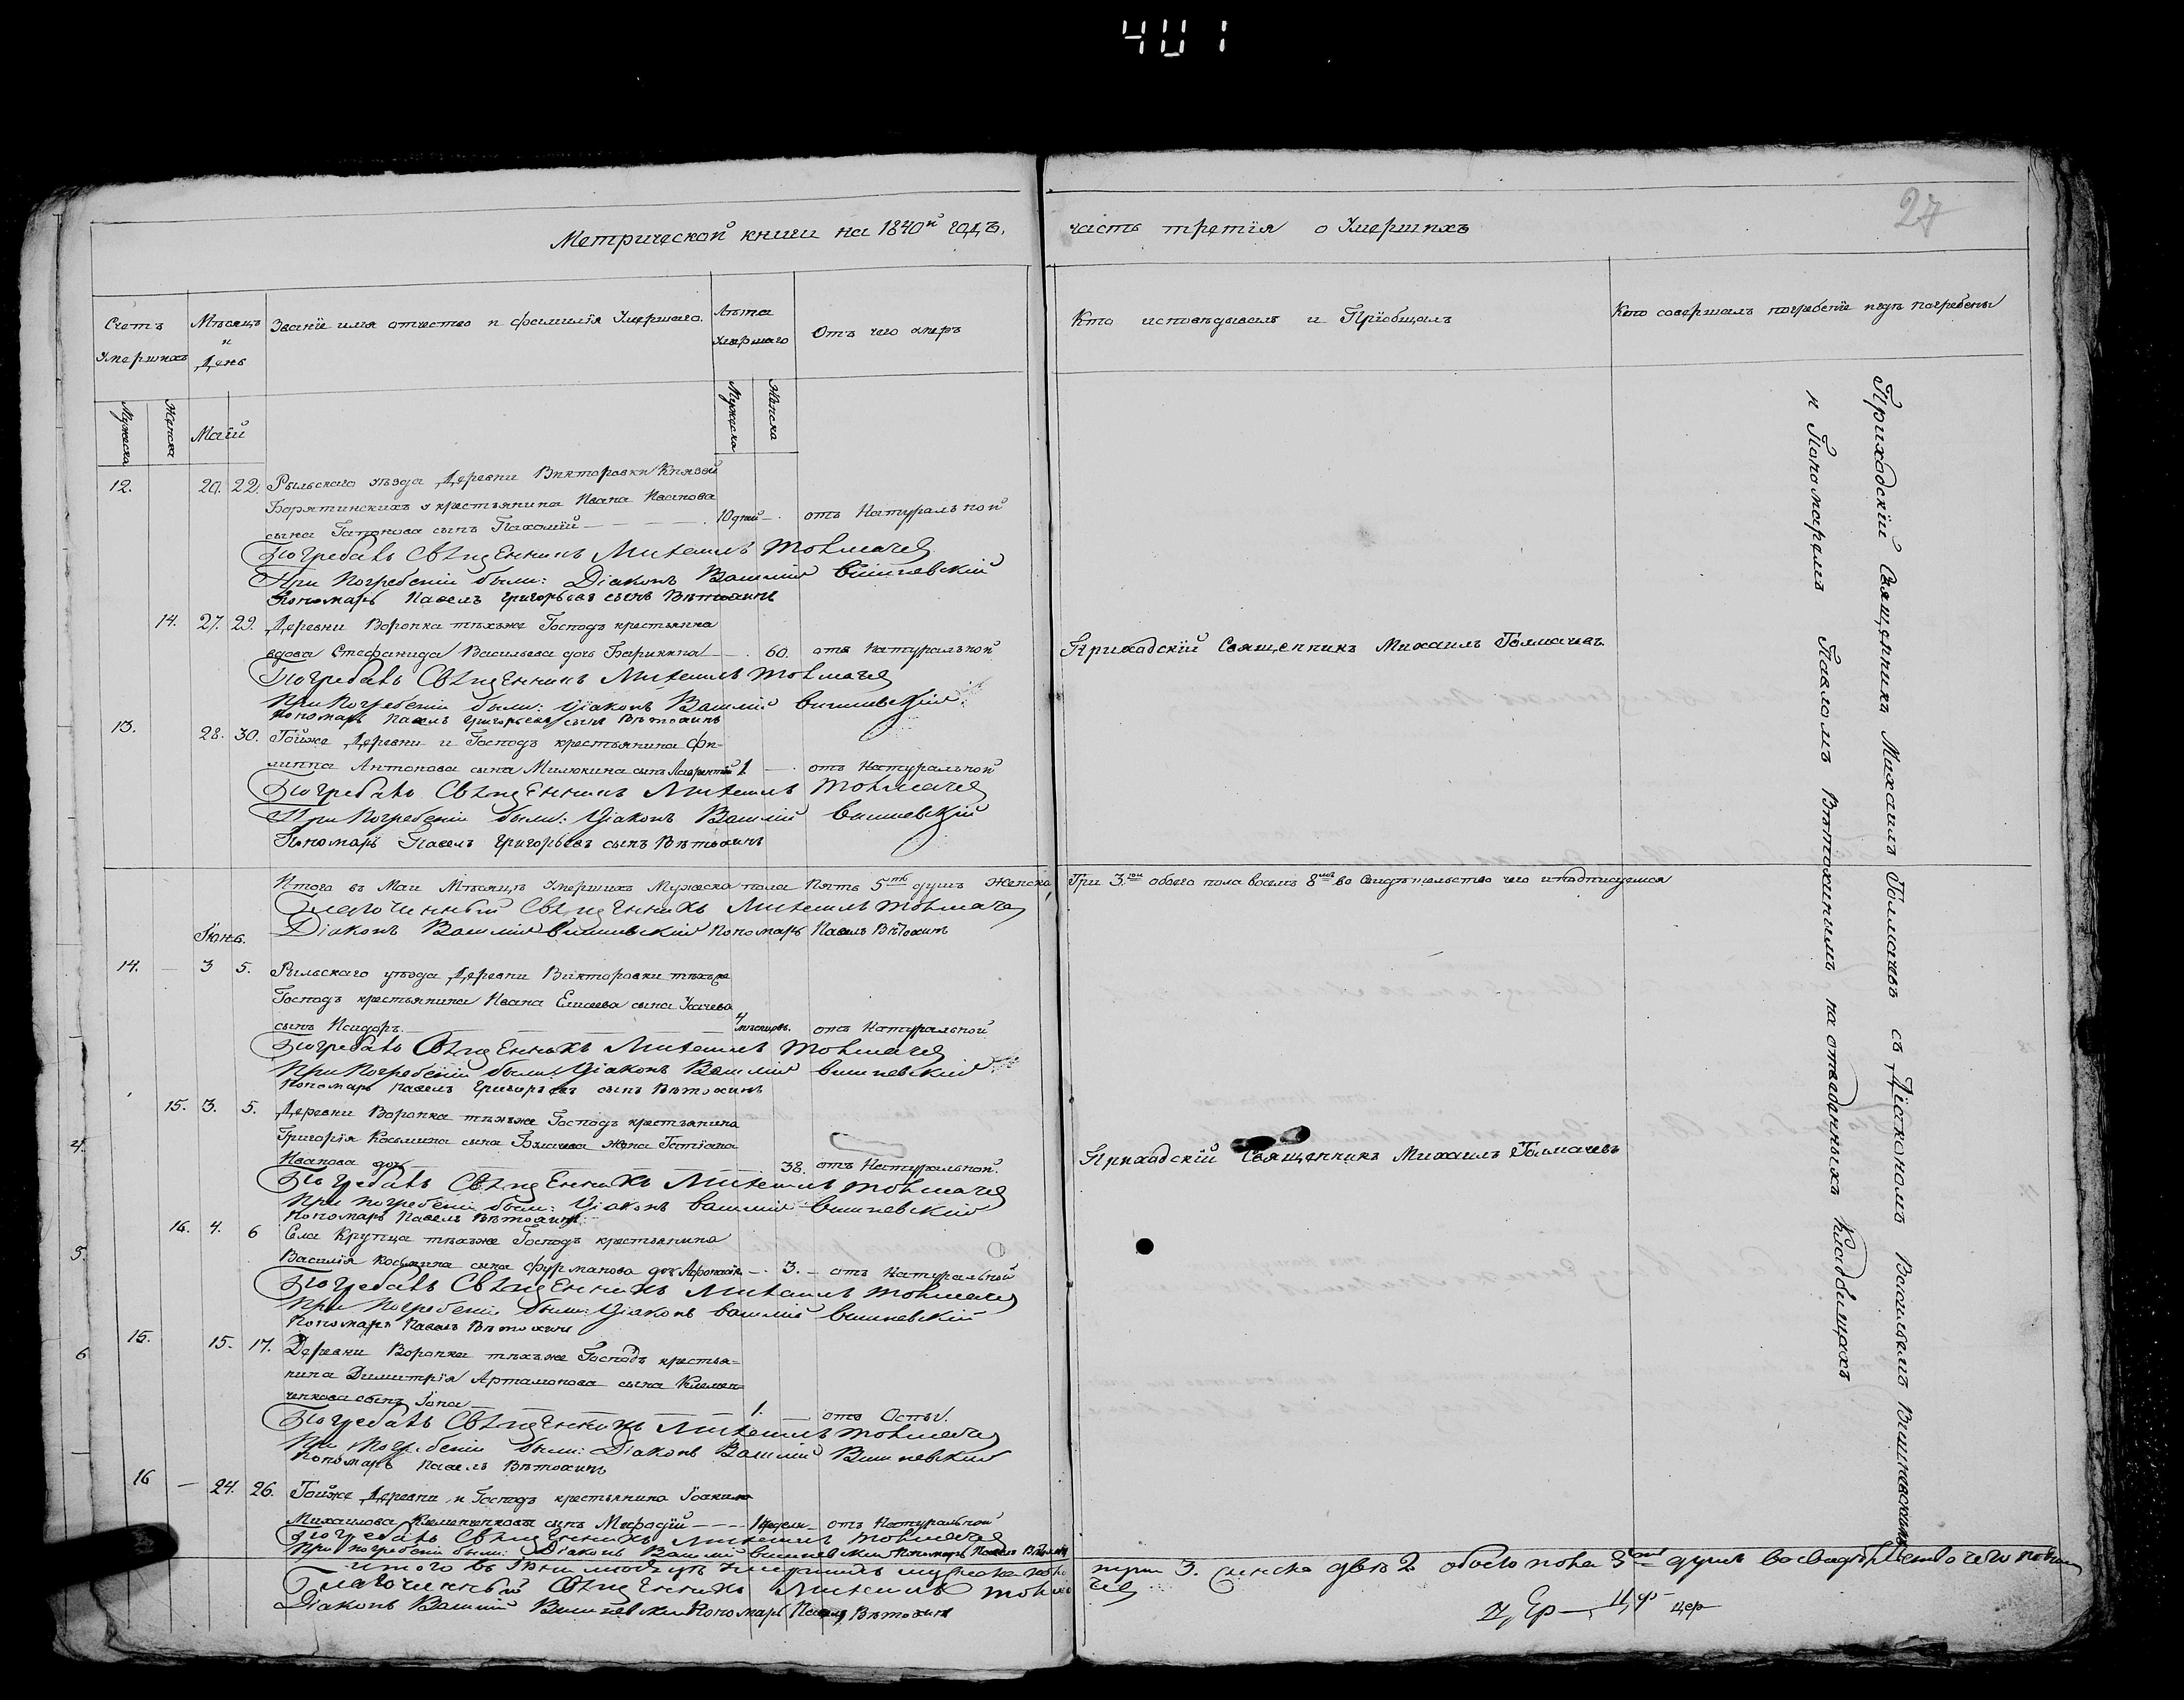 401
27
Метрической книги на 1840й годъ, часть третія о Умершихъ
Счетъ Умершихъ
Мѣсяцъ и День
Званіе имя отчество и фамилія Умершаго.
Лѣта Умершаго
Отъ чего умеръ
Кто исповѣдывалъ и Пріобщалъ
Кто совершалъ погребеніе и гдѣ погребены
Мужеска
Женска
Маій
Мужеска
Женска
12. 20. 22. Рыльскаго уѣзда Деревни Викторовки Князей
Борятинскихъ крестьянина Ивана Иванова
сына Гапонова сынъ Пахомій 10 дней отъ Натуральной
Погребалъ Священникъ Михаилъ Толмачев
При Погребеніи были: Діаконъ Василій Вишневскій
Пономарь Павелъ Григорьевъ сынъ Вѣтохинъ
14. 27. 29. Деревни Воронка тѣхъже Господъ крестьянина
вдова Стефанида Васильева дочь 60. отъ Натуральной
Приходскій Священникъ Михаилъ Толмачевъ
Погребалъ Священникъ Михаилъ Толмачев
При Погребеніи были: Діаконъ Василій Вишневскій
Пономарь Павелъ Григорьевъ сынъ Вѣтохинъ
13. 28. 30. Тойже Деревни и Господъ крестьянина Фи-
липпа Антонова сына Милюкина сынъ 1. отъ Натуральной
Погребалъ Священникъ Михаилъ Толмачев
При Погребеніи были: Діаконъ Василій Вишневскій
Пономарь Павелъ Григорьевъ сынъ Вѣтохинъ
Итого въ Маи Мѣсяцѣ Умершихъ Мужеска пола Пять 5ть душъ Женска
Три 3. обоего пола восемь 8мь во Свидѣтельство чего и подписуемся
Благочинный Священникъ Михаилъ Толмачев
Діаконъ Василій Вишневскій Пономарь Павелъ Вѣтохинъ
Іюнь.
14. — 3 5. Рыльскаго уѣзда Деревни Викторовки тѣхъже
Господъ крестьянина Ивана Елисеева сына
сынъ Исидоръ 4 мѣсяцовъ. отъ Натуральной
Погребалъ Священникъ Михаилъ Толмачев
При Погребеніи были: Діаконъ Василій Вишневскій
Пономарь Павелъ Григорьевъ сынъ Вѣтохинъ
15. 3. 5. Деревни Воронка тѣхъже Господъ крестьянина
Григорія Косьмина сына жена Татіана
Иванова дочь 38. отъ Натуральной.
Приходскій Священникъ Михаилъ Толмачевъ
Погребалъ Священникъ Михаилъ Толмачев
При погребеніи были: Діаконъ Василій Вишневскій
Пономарь Павелъ Вѣтохинъ
16. 4. 6 Села Крупца тѣхъже Господъ крестьянина
Василія Косьмина сына Фурманова дочь 3. отъ Натуральной
Погребалъ Священникъ Михаилъ Толмачев
При Погребеніи были: Діаконъ Василій Вишневскій
Пономарь Павелъ Вѣтохинъ
15. 15. 17. Деревни Воронка тѣхъже Господъ крестья-
нина Димитрія Артамонова сына Клемен-
ченкова сынъ Іона 1. отъ Оспы.
Погребалъ Священникъ Михаилъ Толмачев
При Погребеніи были: Діаконъ Василій Вишневскій
Пономарь Павелъ Вѣтохинъ
16 — 24. 26. Тойже Деревни и Господъ крестьянина Іоакима
Михаилова Клеменченкова сынъ Мефодій 1 недели отъ Натуральной
Погребалъ Священникъ Михаилъ Толмачев
При погребеніи были: Діаконъ Василій Вишневскій Пономарь Павелъ Вѣтохинъ
Итого въ Іюни мѣсяцѣ умершихъ мужеска пола
три 3. женска двѣ 2 обоего пола 5 душъ во свидѣтельство чего
Благочинный Священникъ Михаилъ Толмачев
Діаконъ Василій Вишневскій Пономарь Павелъ Вѣтохинъ
Приходскій Священникъ Михаилъ Толмачевъ съ Діакономъ Васильемъ Вишневскимъ
и Пономаремъ Павломъ Вѣтохинымъ на отведенныхъ Кладбищахъ
4.
5.
6